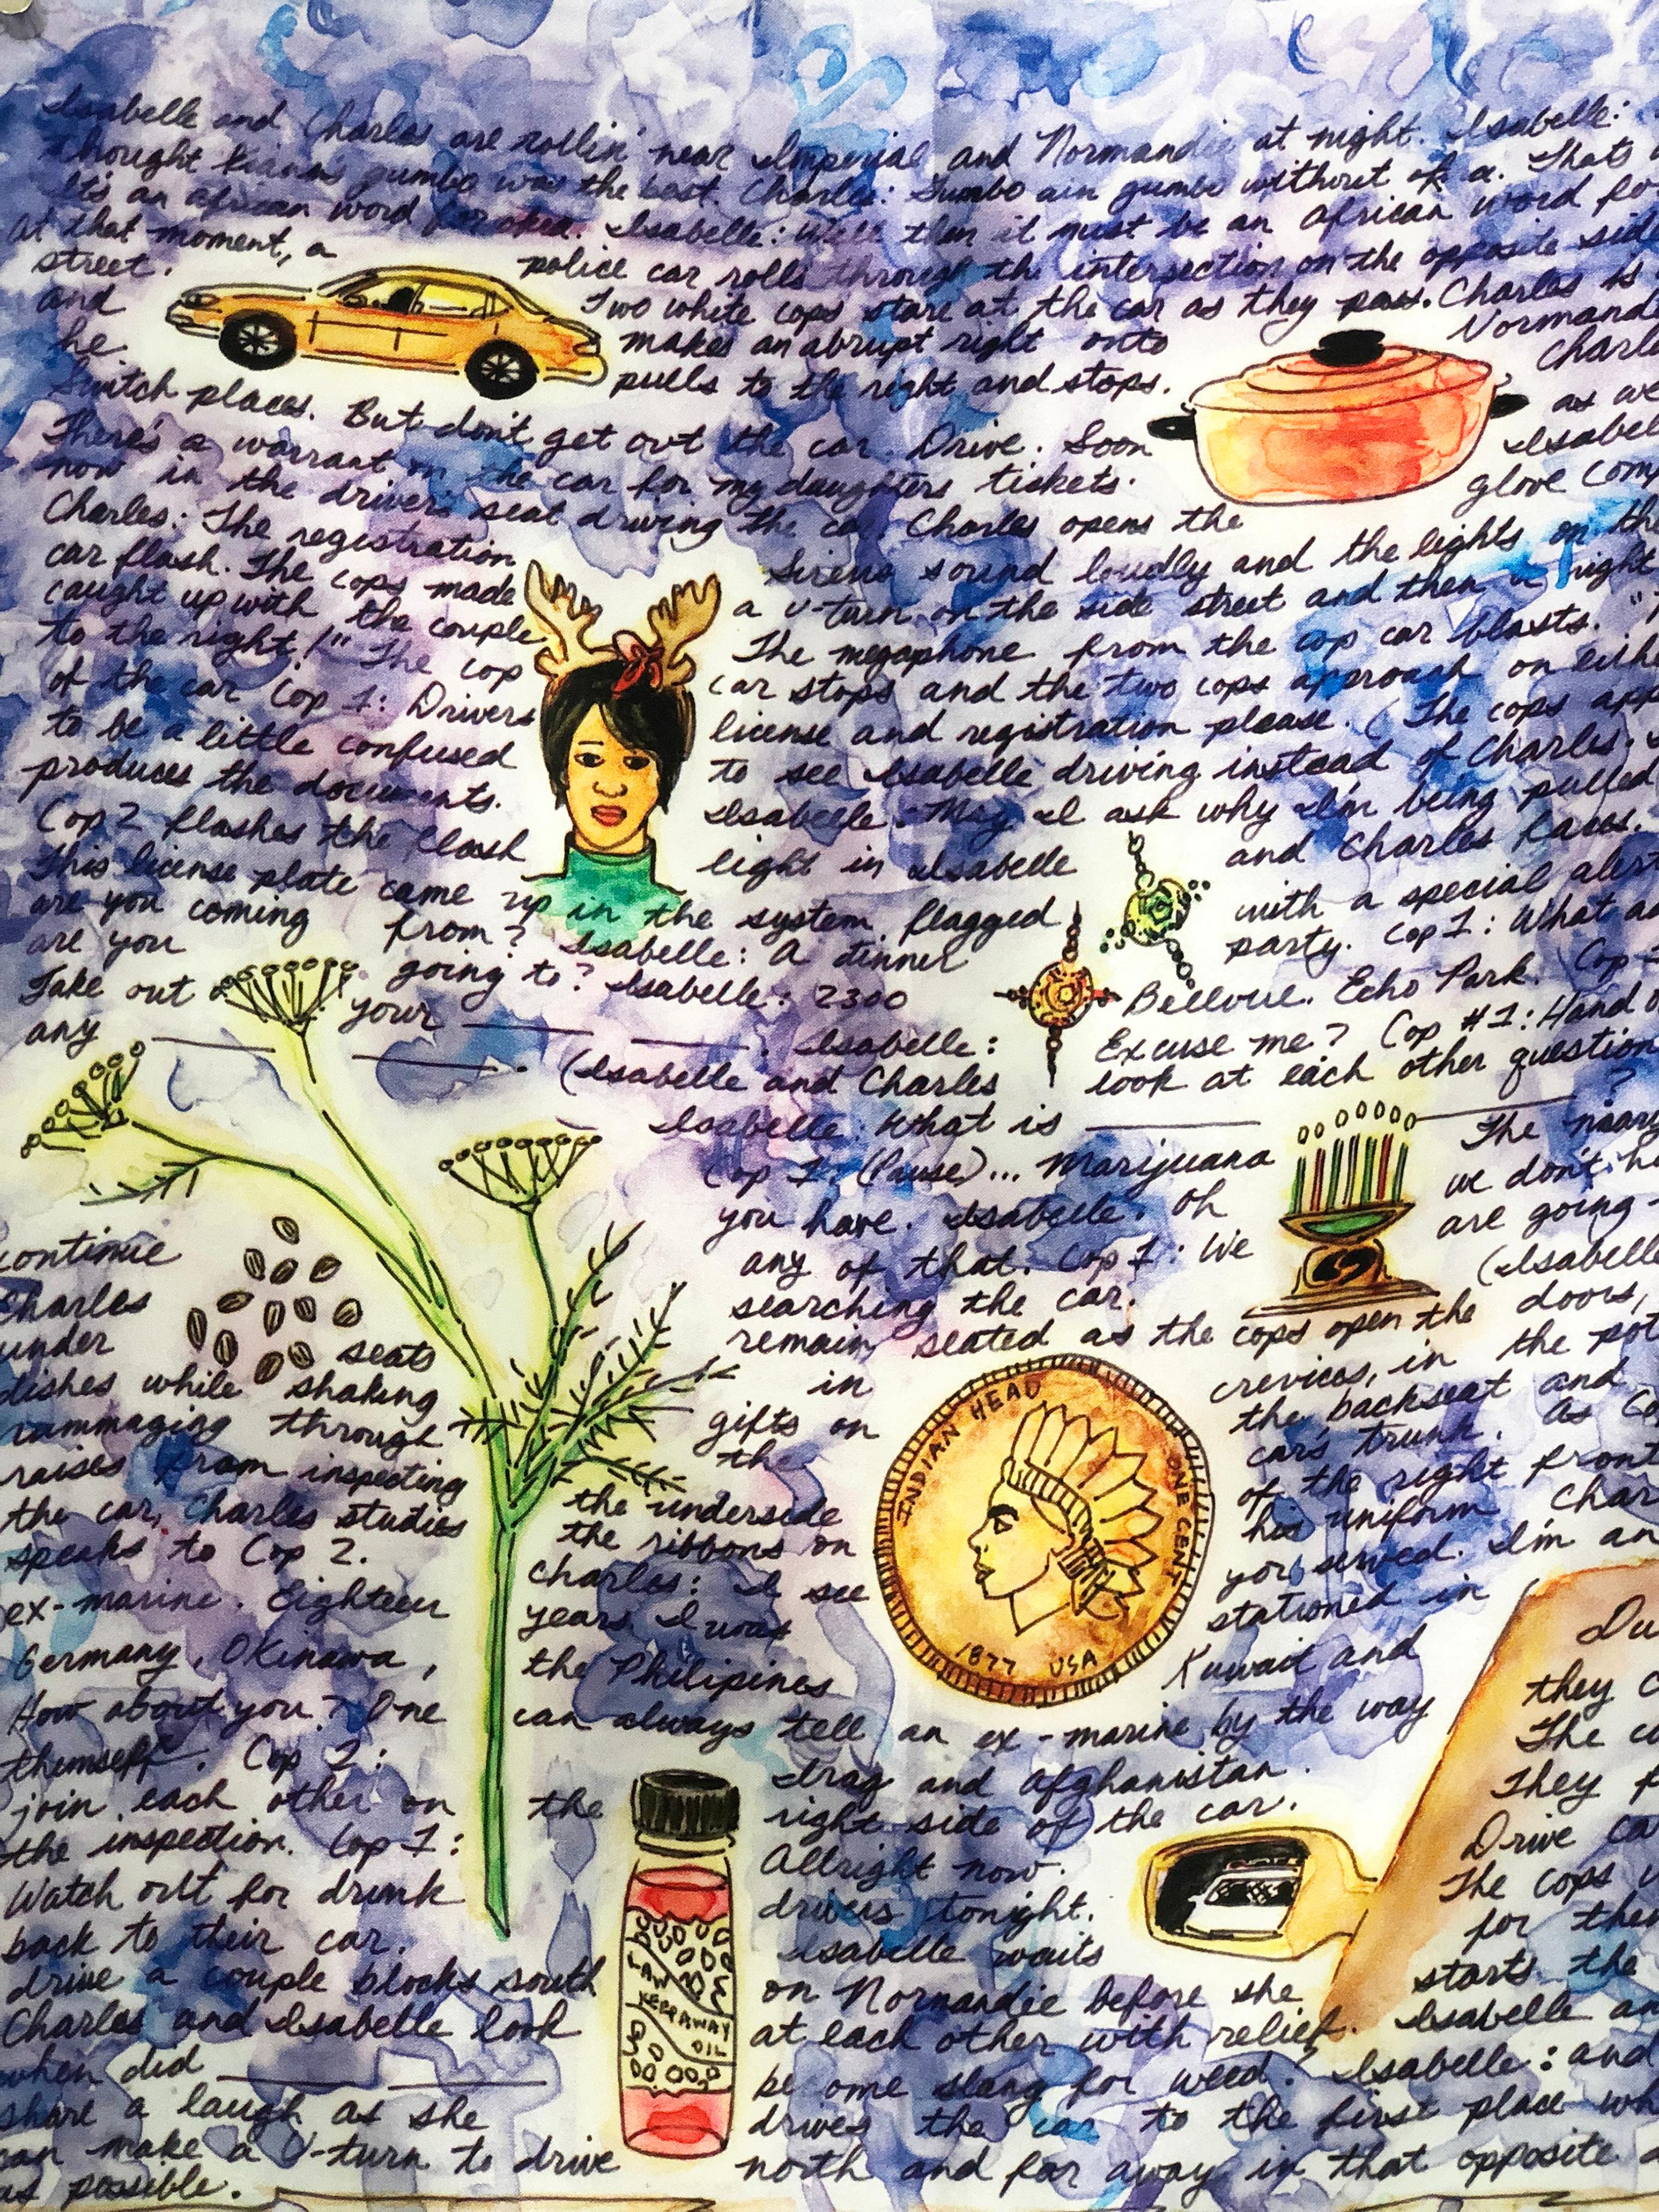 Isabelle and Charles are rollin' near Imperial and Normandie at night. Isabelle:
thought Kiana's gumbo was the best. Charles: Gumbo ain gumbo without okra. Thats
It's an african word for okra. Isabelle: Well then it must be an african word fo
at that moment, a
street. police car rolls through the intersection on the opposite side
and Two white cops stare at the car as they pass. Charles is
he makes an abrupt right onto Normandi
pulls to the right and stops. Charle
Switch places. But don't get out the car. Drive. Soon as we
There's a warrant on the car for my daughters tickets. Isabel
now in the drivers seat driving the car. Charles opens the glove comp
Charles: The registration
car flash. The cops made Sirens sound loudly and the lights on the
caught up with the couple a U-turn on the side street and then a right
to the right!" The cop The megaphone from the cop car blasts. "
of the car Cop 1: Drivers car stops and the two cops approach on eithe
to be a little confused license and registration please. (The cops app
produces the documents. to see Isabelle driving instead of Charles.
Isabelle: May I ask why I'm being pulled
Cop 2 flashes the flash light in Isabelle and Charles faces.
This license plate came up in the system, flagged with a special alert
are you coming from? Isabelle: A dinner party. Cop 1: What a
are you going to? Isabelle: 2300 Bellevue. Echo Park. Cop
Take out your . Isabelle: Excuse me? Cop #1: Hand o
any . (Isabelle and Charles look at each other question
Isabelle: What is ?
Cop 1: (Pause)... Marijuana The
you have. Isabelle: Oh we don't ha
any of that. Cop 1: We are going
searching the car. (Isabelle
continue remain seated as the cops open the doors,
Charles in crevices, in the pot
under seats gifts on the backseat and
dishes while shaking the car's trunk. As Co
rummaging through of the right front
raises from inspecting the underside his uniform Char
the car, Charles studies the ribbons on you served. I'm an
speaks to Cop 2. Charles: I see stationed in
ex-marine. Eighteen years. I was Kuwait and
Germany, Okinawa, the Philipines
How about you? One can always tell an ex-marine by the way
themself. Cop 2: Iraq and Afghanistan.
join each other on the right side of the car.
the inspection. Cop 1: Allright now.
Watch out for drunk drivers tonight.
back to their car. Isabelle waits
drive a couple blocks south on Normandie before she starts the
Charles and Isabelle look at each other with relief. Isabelle an
when did become slang for weed? Isabelle: and
share a laugh as she drives the car to the first place wh
can make a U-turn to drive north and far away in that opposite
as possible.
INDIAN HEAD
ONE CENT
1877 USA
Du
they c
The co
They
Drive ca
The cops
for the
LAW
KEEPAWAY
OIL